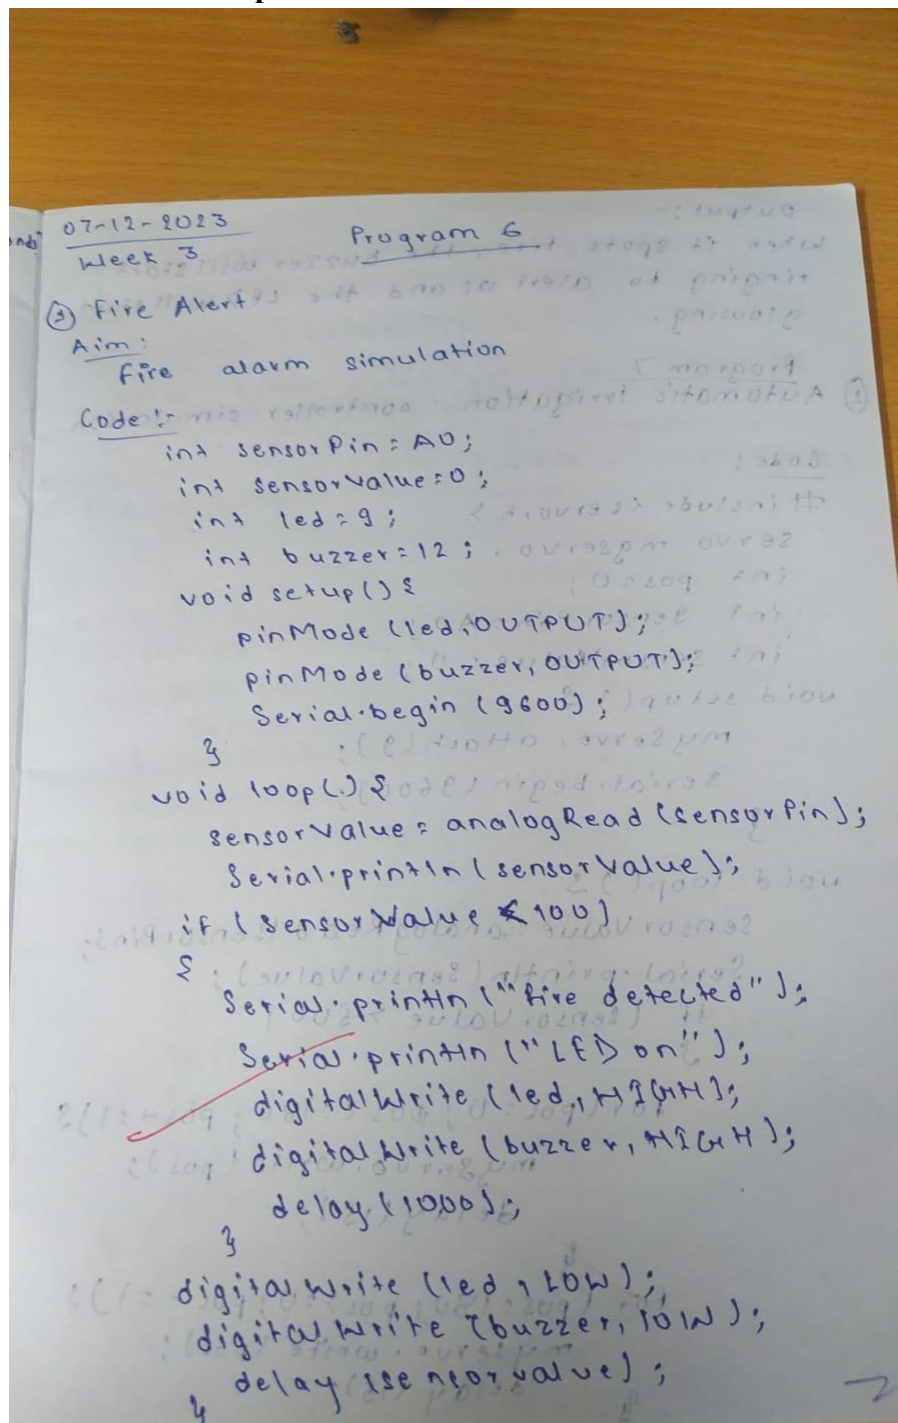 07-12-2023
Week 3
Program 6
③ Fire Alert
Aim:
Fire alarm simulation
Code:-
int sensorPin = A0;
int sensorValue=0;
int led = 9;
int buzzer=12;
void setup() {
pinMode (led,OUTPUT);
pinMode (buzzer, OUTPUT);
Serial.begin (9600);
}
void loop() {
sensorValue = analogRead (sensorPin);
Serial.println (sensorValue);
if (sensorValue < 100)
{
Serial.println ("fire detected");
Serial.println ("LED on");
digitalWrite (led, HIGH);
digitalWrite (buzzer, HIGH);
delay (1000);
}
digitalWrite (led, LOW);
digitalWrite (buzzer, LOW);
delay (sensorvalue);
}